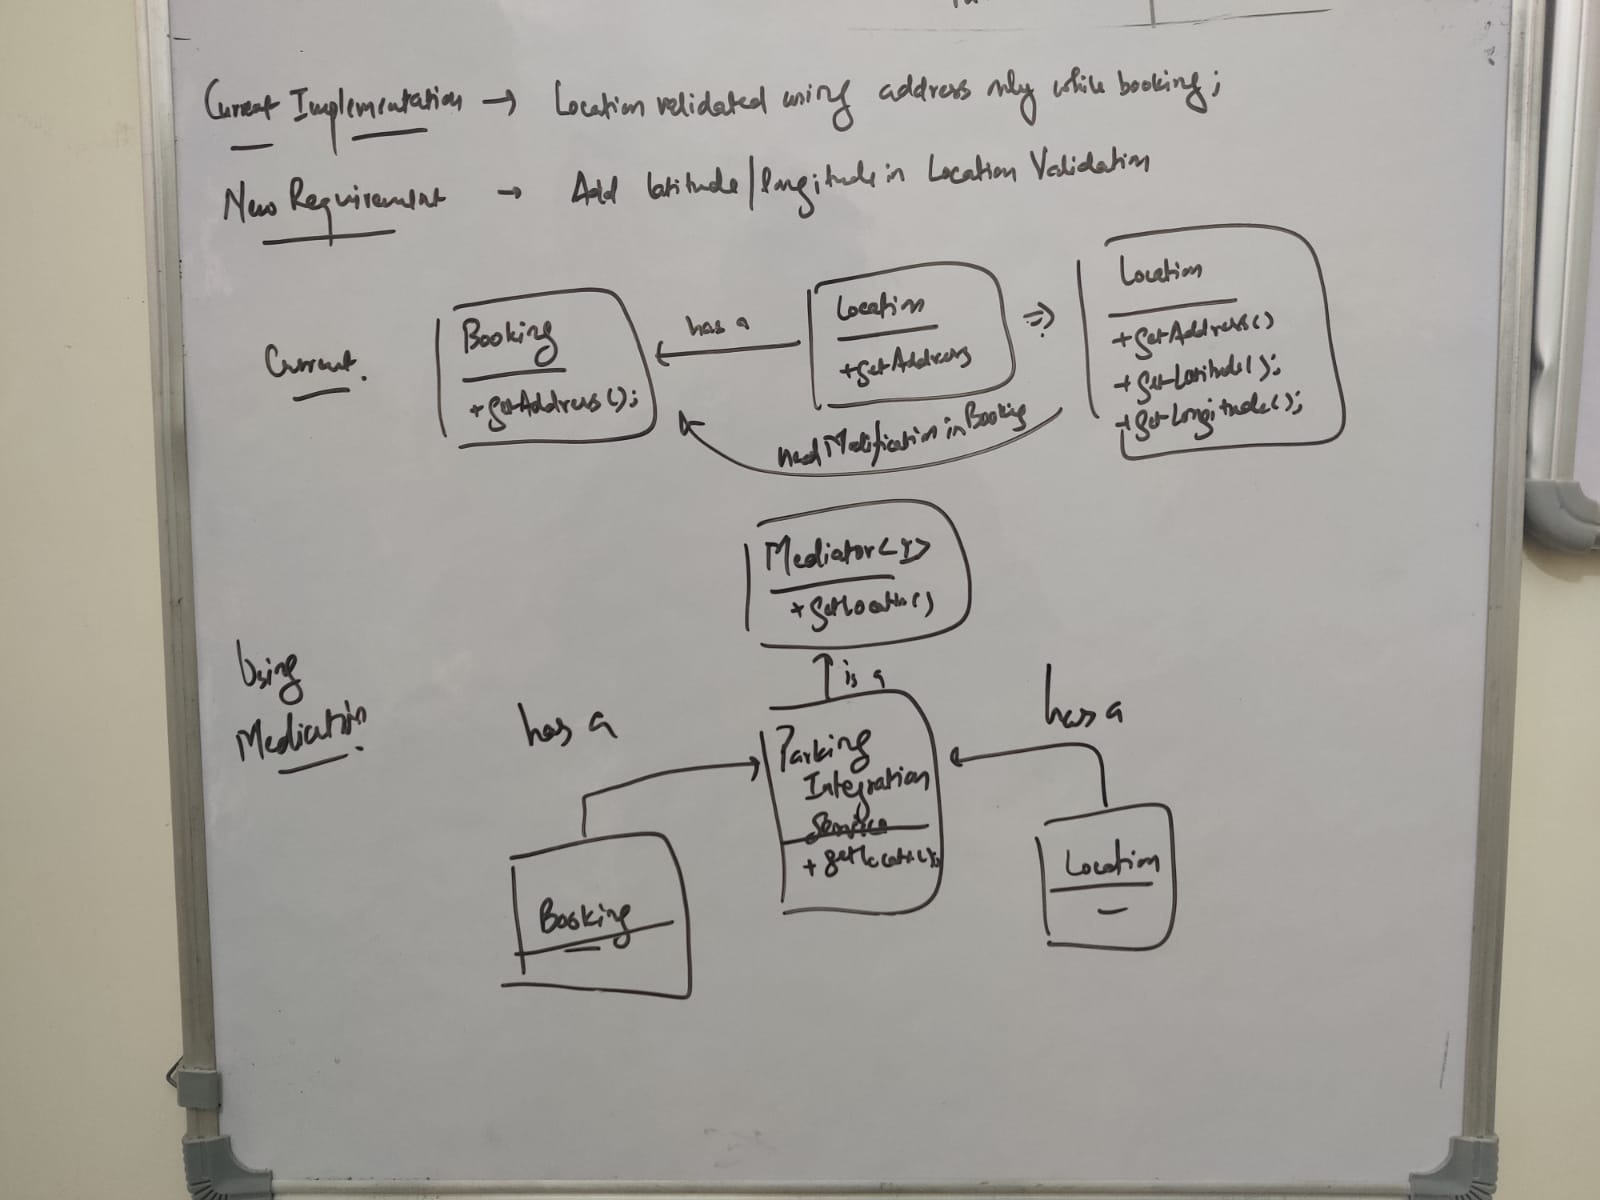 Current Implementation → Location validated using address only while booking;
New Requirement → Add latitude/longitude in Location Validation
Current.
Booking
+getAddress();
has a
Location
+getAddress
⇒
Location
+getAddress()
+getLatitude();
+getLongitude();
need Modification in Booking
Mediator<I>
+getLocation()
Using
Mediation
is a
has a
has a
Parking
Integration
Service
+getLocation();
Booking
Location